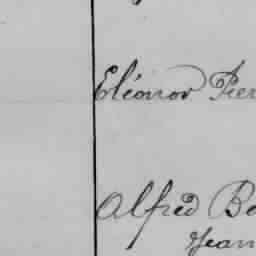 Eléonor Pier
Alfred Ba
Jean